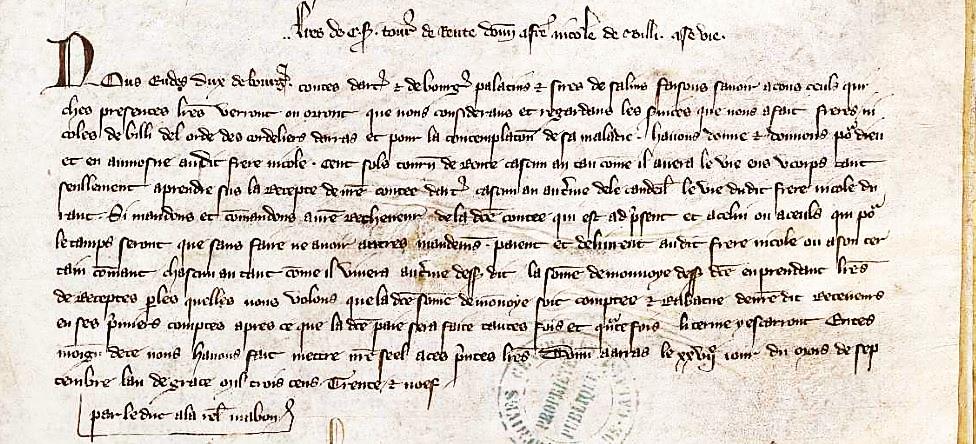 Lres de C s. tourn de Rente donn a fre nicole de Billi. a se vie.
Nous Eudes dux de bourg. contes dart & de bourg palatins & sires de salins faisons savoir a tous ceuls qui
ches presentes lres verront ou orront que nous considerans et regardans les services que nous a fait freres ni
coles de billi del orde des cordeliers darras et pour la contemplaton de sa maladie. havons donne & donnons por dieu
et en aumosne audit frere nicole. cent sols tourn de Rente cascun an tan come il avera le vie ens u corps tant
seullement a prendre sus la Recepte de nre contee dart cascun an au tme dele candel le vie dudit frere nicole du
rant. Si mandons et comandons a nre Recheveur de la dce contee qui est a present et a celui ou a ceuls qui por
le tamps seront que sans faire ne avoir autres mandemens. paient et delivrent audit frere nicole ou a son cer
tain comant chascun an tant come il vivera au tme dess. dit la some de monnoye dess. dce en prendant lres
de Receptes p les quelles nous volons que la dce some de monoye soit comptee & Rabatue de nre dit Receveurs
en ses pmiers comptes apres ce que la dce paie sera faite tantes fois et quntefois li terme y escarront En tes
moign de ce nous havons fait mettre nre seel a ces pntes lres Donn a arras le xxviije iour du mois de sep
tembre lan de grace mil trois cens Trente & noef.
par le duc a la rel mabon
PROPRIETE
PUBLIQUE